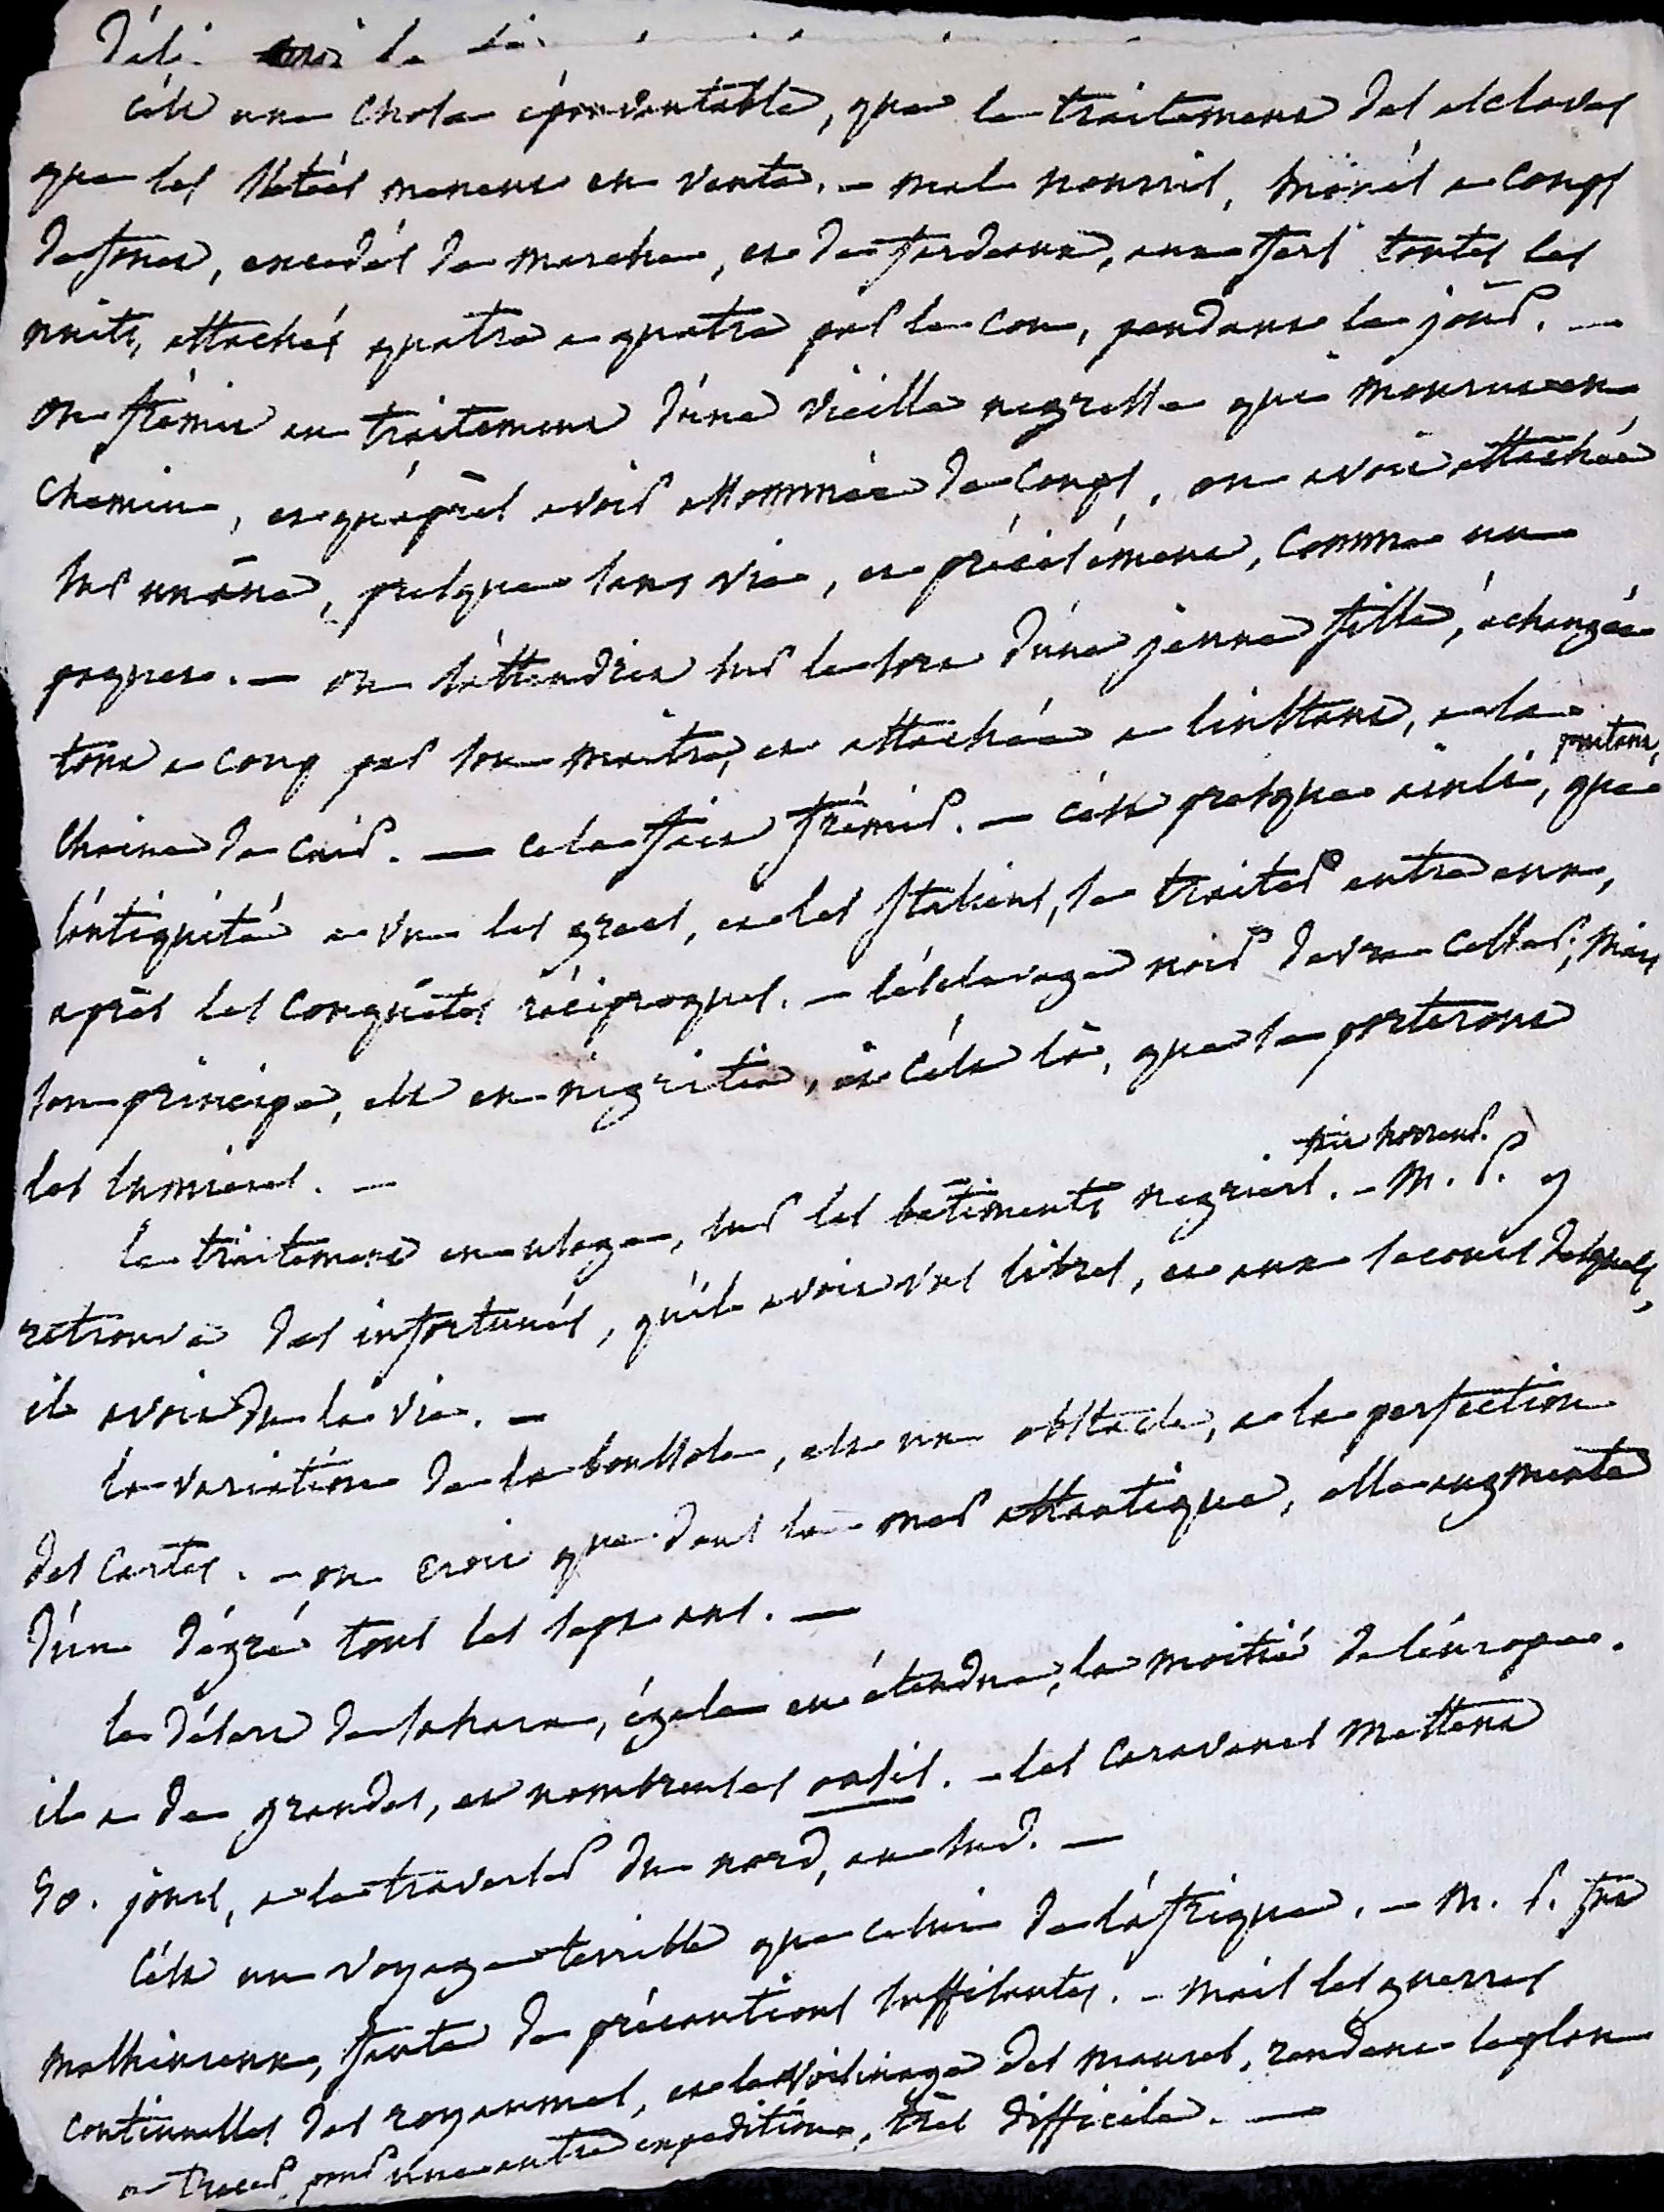 c'est une chose épouvantable, que le traitement des esclaves
que les Slatées menent en vente. – mal nourris, menés a coups
de fouet, excedés de marche, et de fardeaux, aux fers toutes les
nuits, attachés quatre a quatre par le cou, pendant le jour. —
on frémit au traitement d'une vieille negresse qui mourut en
chemin, et qu'après avoir assommée de coups, on avoit attachée
sur un âne, presque sans vie, et précisément, comme un
paquet. — on s'attendrit sur le sort d'une jeune fille, échangée
tout a coup par son maitre, et attachée a l'instant, a la
chaine de cuir. — cela fait frémir. — c'est presque ainsi, pourtant, que
l'antiquité a vu les grecs, et les Italiens, se traiter entre eux,
après les conquêtes réciproques. — l'esclavage noir devra cesser; mais
son principe, est en nigritie, et c'est là, que se porteront
les lumieres. —
le traitement en usage, sur les bâtiments negriers, fait horreur. – M. P. y
retrouva des infortunés, qu'il avoit vus libres, et aux secours desquels,
il avoit du la vie. —
la variation de la boussole, est un obstacle, a la perfection
des cartes. – on croit que dans la mer atlantique, elle augmente
d'un dégré tous les sept ans. —
le désert de sahara, égale en étendue, la moitié de l'europe.
il a de grandes, et nombreuses oasis. – les caravanes mettent
50. jours, a le traverser du nord, au sud. —
C'est un voyage terrible que celui de l'afrique. – M. P. fut
malheureux, faute de précautions suffisantes. – mais les guerres
continuelles des royaumes, et le voisinage des maures, rendent le plan
a tracer, pour une autre expedition, très difficile. —